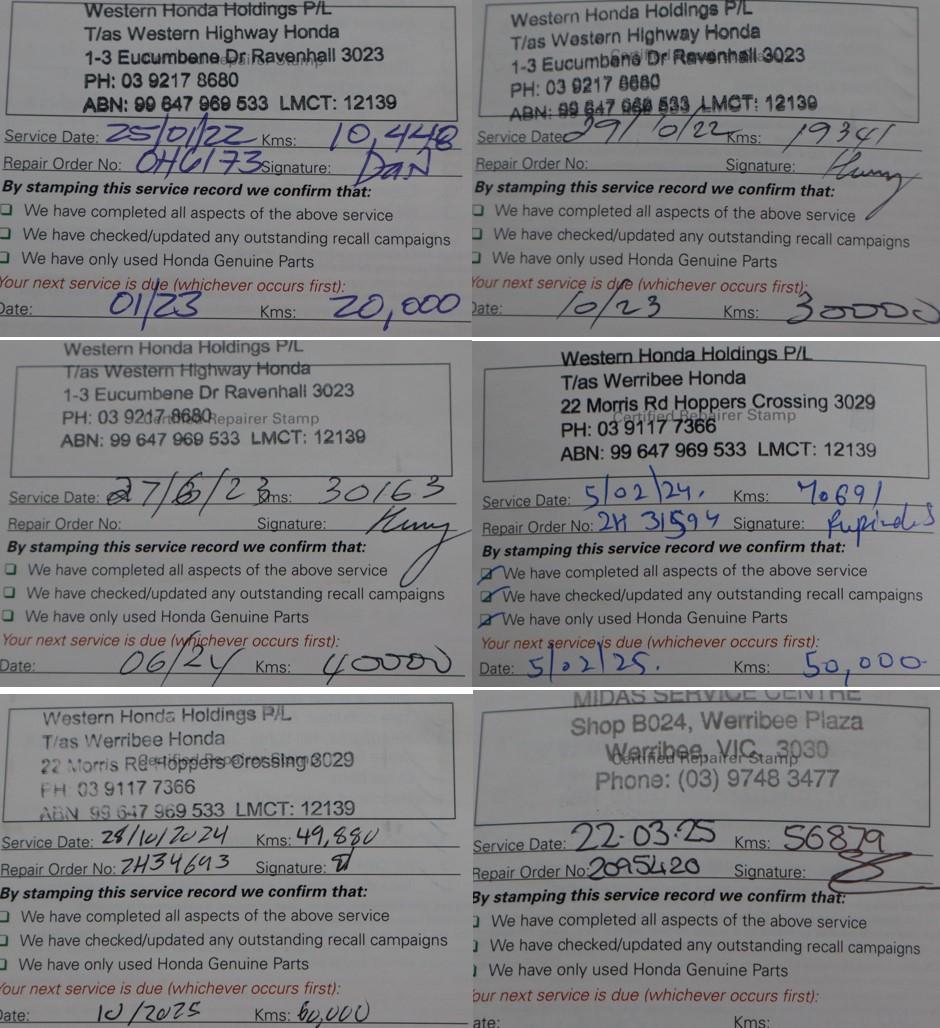 Western Honda Holdings P/L
T/as Western Highway Honda
1-3 Eucumbene Dr Ravenhall 3023
PH: 03 9217 8680
ABN: 99 647 969 533 LMCT: 12139
Service Date: 25/01/22 Kms: 10,448
Repair Order No: OH6173 Signature: Dan
By stamping this service record we confirm that:
We have completed all aspects of the above service
We have checked/updated any outstanding recall campaigns
We have only used Honda Genuine Parts
Your next service is due (whichever occurs first):
Date: 01/23 Kms: 20,000
Western Honda Holdings P/L
T/as Western Highway Honda
1-3 Eucumbene Dr Ravenhall 3023
PH: 03 9217 8680
ABN: 99 647 969 533 LMCT: 12139
Service Date: 29/10/22 Kms: 19341
Repair Order No: Signature:
By stamping this service record we confirm that:
We have completed all aspects of the above service
We have checked/updated any outstanding recall campaigns
We have only used Honda Genuine Parts
Your next service is due (whichever occurs first):
Date: 10/23 Kms: 30000
Western Honda Holdings P/L
T/as Western Highway Honda
1-3 Eucumbene Dr Ravenhall 3023
PH: 03 9217 8680
Certified Repairer Stamp
ABN: 99 647 969 533 LMCT: 12139
Service Date: 27/6/23 Kms: 30163
Repair Order No: Signature:
By stamping this service record we confirm that:
We have completed all aspects of the above service
We have checked/updated any outstanding recall campaigns
We have only used Honda Genuine Parts
Your next service is due (whichever occurs first):
Date: 06/24 Kms: 40000
Western Honda Holdings P/L
T/as Werribee Honda
22 Morris Rd Hoppers Crossing 3029
Certified Repairer Stamp
PH: 03 9117 7366
ABN: 99 647 969 533 LMCT: 12139
Service Date: 5/02/24. Kms: 40691
Repair Order No: 2H 31594 Signature:
By stamping this service record we confirm that:
We have completed all aspects of the above service
We have checked/updated any outstanding recall campaigns
We have only used Honda Genuine Parts
Your next service is due (whichever occurs first):
Date: 5/02/25. Kms: 50,000
Western Honda Holdings P/L
T/as Werribee Honda
22 Morris Rd Hoppers Crossing 3029
Certified Repairer Stamp
PH: 03 9117 7366
ABN: 99 647 969 533 LMCT: 12139
Service Date: 28/10/2024 Kms: 49,880
Repair Order No: 2H34643 Signature:
By stamping this service record we confirm that:
We have completed all aspects of the above service
We have checked/updated any outstanding recall campaigns
We have only used Honda Genuine Parts
Your next service is due (whichever occurs first):
Date: 10/2025 Kms: 60,000
MIDAS SERVICE CENTRE
Shop B024, Werribee Plaza
Werribee, VIC, 3030
Certified Repairer Stamp
Phone: (03) 9748 3477
Service Date: 22-03-25 Kms: 56879
Repair Order No: 2095420 Signature:
By stamping this service record we confirm that:
We have completed all aspects of the above service
We have checked/updated any outstanding recall campaigns
We have only used Honda Genuine Parts
Your next service is due (whichever occurs first):
Date: Kms: